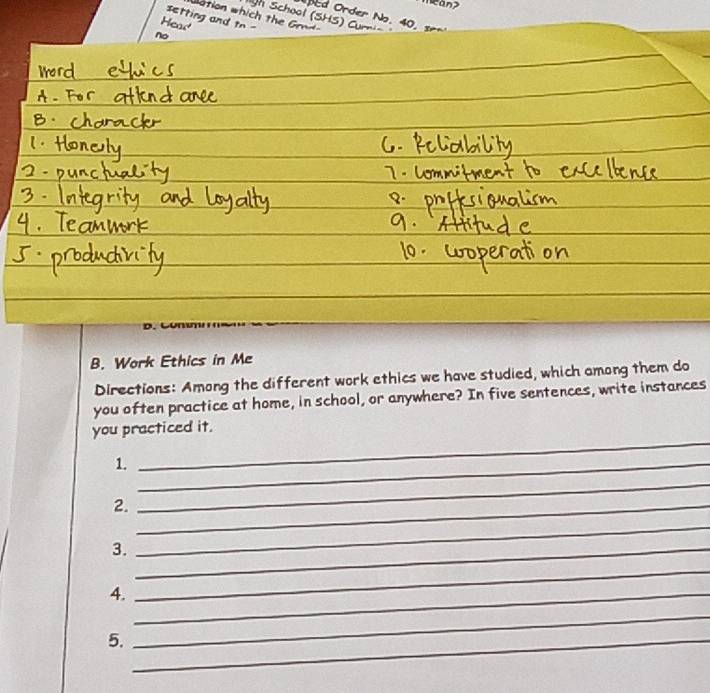 School (SHS)
pEd Order No. 40,
which the
setting and
no
word ethics
A. For attendance
B. Character
1. Honesty
2. punctuality
3. Integrity and Loyalty
4. Teamwork
5. productivity
6. Reliability
7. Commitment to excellence
8. proffesionalism
9. Attitude
10. Cooperation
B. Work Ethics in Me
Directions: Among the different work ethics we have studied, which among them do
you often practice at home, in school, or anywhere? In five sentences, write instances
you practiced it.
1.
2.
3.
4.
5.